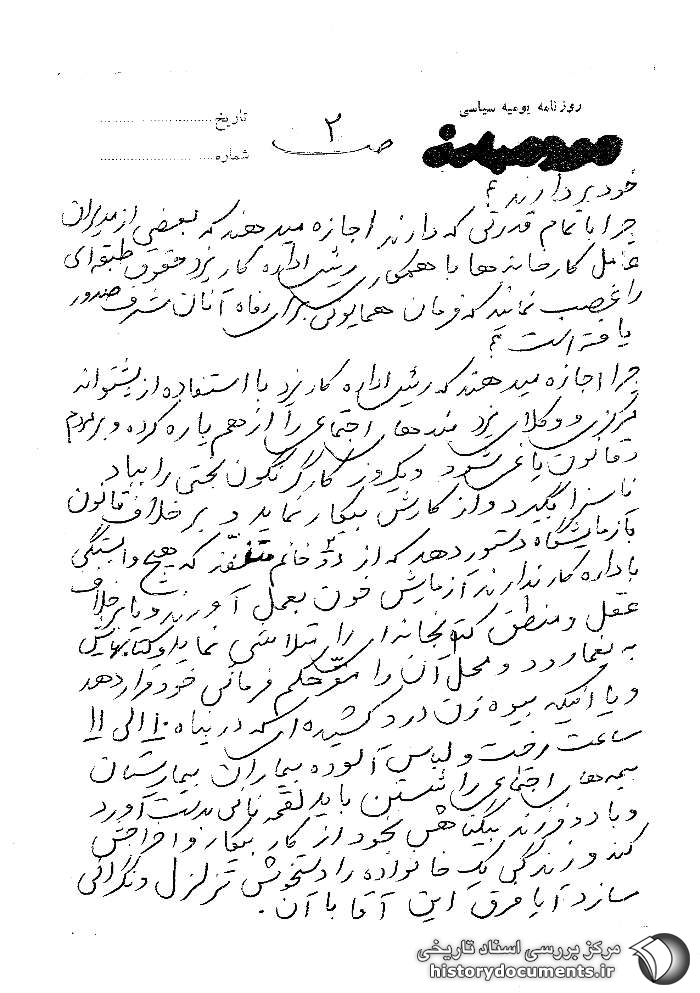 روزنامه یومیه سیاسی
تاریخ
شماره
ص ۲
خود بردارند ؟
چرا با تمام قدرتی که دارند اجازه میدهند که بعضی از مدیران
عامل کارخانه ها با همکاری رئیس اداره کار یزد حقوق طبقه ای
را غصب نمایند که فرمان همایونی برای رفاه آنان شرف صدور
یافته است ؟
چرا اجازه میدهند که رئیس اداره کار یزد با استفاده از پشتوانه
مرکزی و وکلای یزد بندهای اجتماعی را از هم پاره کرده و بر مردم
و قانون یاغی شود و یکروز کارگر نگون بختی را بباد
ناسزا بگیرد و از کارش بیکار نماید و بر خلاف قانون
بآزمایشگاه دستور دهد که از دو خانم متنفذ که هیچ وابستگی
باداره کار ندارند آزمایش خون بعمل آورند و یا بر خلاف
عقل و منطق کتابخانه ای را متلاشی نماید و کتابهایش
به یغما رود و محل آن را مقر حکم فرمائی خود قرار دهد
و یا اینکه بیوه زن درد کشیده ای که در پناه ۱۰ الی ۱۱
ساعت رخت و لباس آلوده بیماران بیمارستان
بیمه های اجتماعی را شستن باید لقمه نانی بدست آورد
و با دو فرزند بیگناهش بخود از کار بیکار و اخراجش
کند و زندگی یک خانواده را دستخوش تزلزل و نگرانی
سازد آیا فرق این آقا با آن .
مرکز بررسی اسناد تاریخی
historydocuments.ir